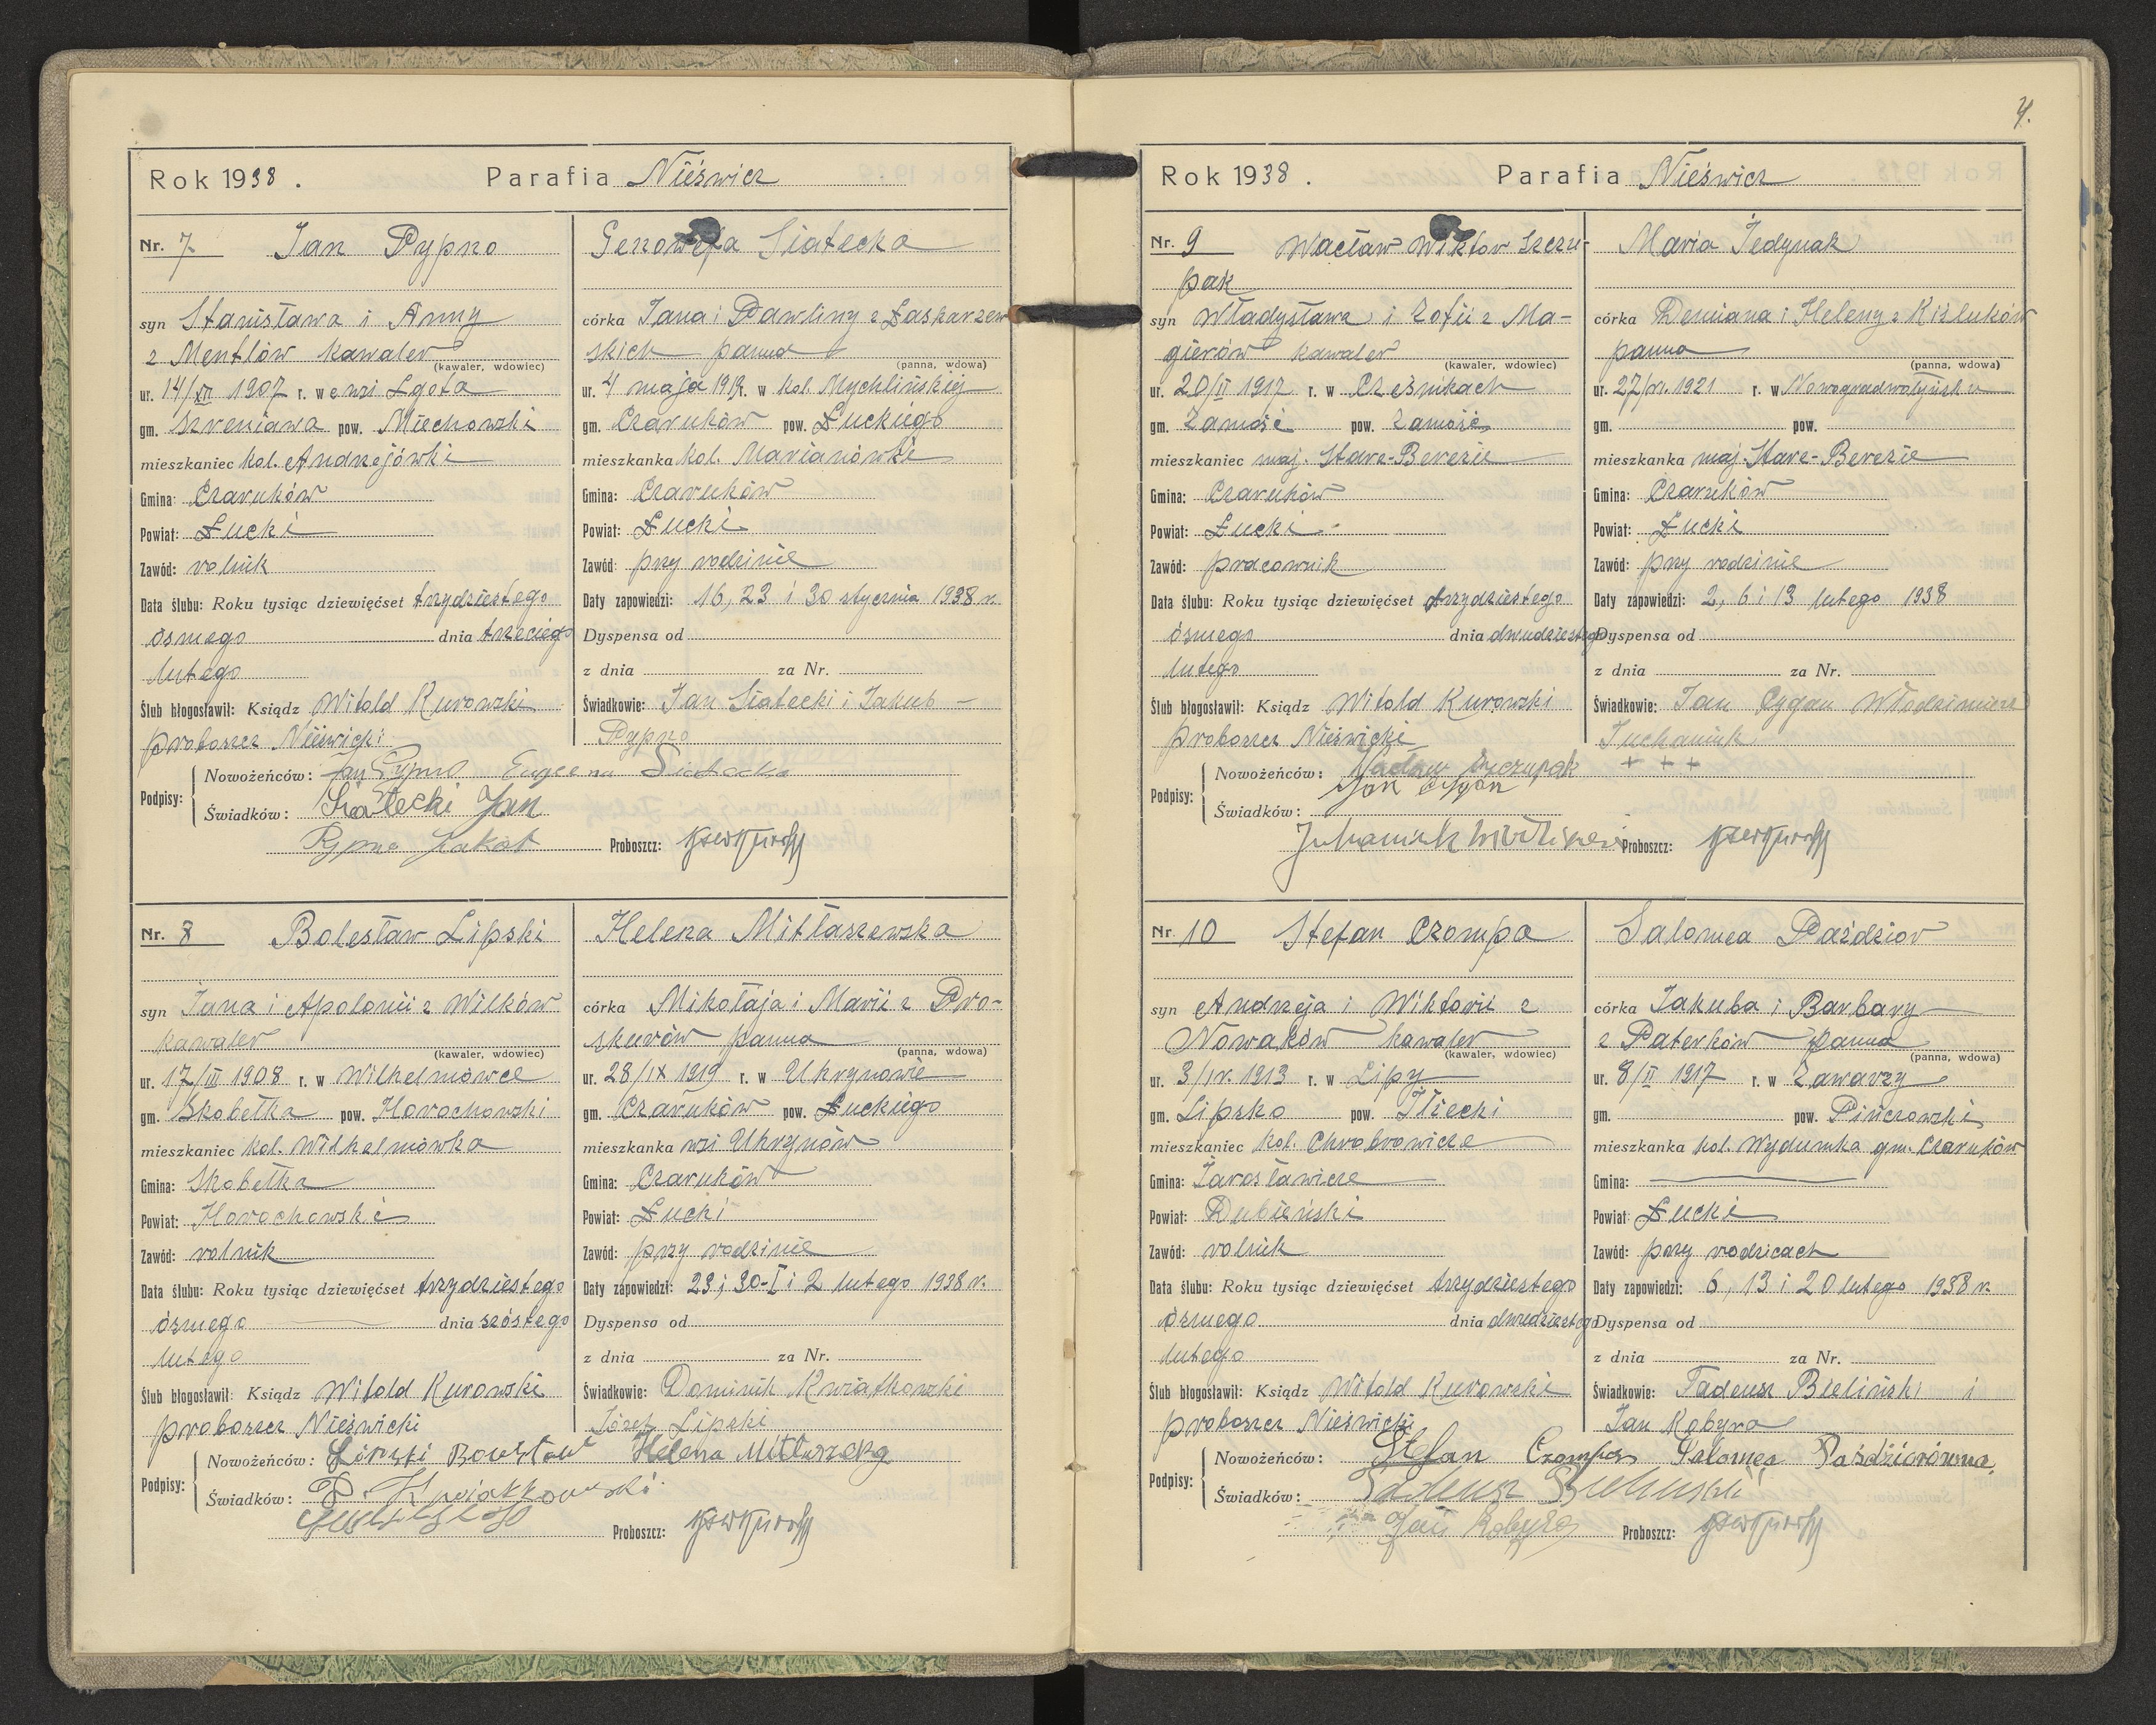 4.
Rok 1938. Parafia Nieświcz
Nr. 7 Jan Pypno
syn Stanisława i Anny
z Mentlów kawaler
(kawaler, wdowiec)
ur. 14/XII 1907 r. w e wsi Lgota
gm. Szreniawa pow. Miechowski
mieszkaniec kol. Andrzejówki
Gmina: Czaruków
Powiat: Łucki
Zawód: rolnik
Data ślubu: Roku tysiąc dziewięćset trzydziestego
ósmego dnia trzeciego
lutego
Ślub błogosławił: Ksiądz Witold Kurowski
proboszcz Nieświcki
Genowefa Siatecka
córka Jana i Pawliny z Łaskarzew
skich panna
(panna, wdowa)
ur. 4 maja 1919 r. w kol. Mychlińskiej
gm. Czaruków pow. Łuckiego
mieszkanka kol. Marianówki
Gmina: Czaruków
Powiat: Łucki
Zawód: przy rodzinie
Daty zapowiedzi: 16, 23 i 30 stycznia 1938 r.
Dyspensa od
z dnia za Nr.
Świadkowie: Jan Siatecki i Jakub
Pypno
Podpisy:
Nowożeńców: Jan Pypno Eugeena Siatecka
Świadków: Siatecki Jan
Pypno Jakób Proboszcz:
Nr. 8 Bolesław Lipski
syn Jana i Apolonii z Wilków
kawaler
(kawaler, wdowiec)
ur. 17/III 1908 r. w Wilhelmówce
gm. Skobełka pow. Horochowski
mieszkaniec kol. Wilhelmówka
Gmina: Skobełka
Powiat: Horochowski
Zawód: rolnik
Data ślubu: Roku tysiąc dziewięćset trzydziestego
ósmego dnia szóstego
lutego
Ślub błogosławił: Ksiądz Witold Kurowski
proboszcz Nieświcki
Helena Mitłaszewska
córka Mikołaja i Marii z Pro-
skurów panna
(panna, wdowa)
ur. 28/IX 1919 r. w Uhrynowie
gm. Czaruków pow. Łuckiego
mieszkanka wsi Uhrynów
Gmina: Czaruków
Powiat: Łucki
Zawód: przy rodzinie
Daty zapowiedzi: 23 i 30-I i 2 lutego 1938 r.
Dyspenso od
z dnia za Nr.
Świadkowie: Dominik Kwiatkowski
Józef Lipski
Podpisy:
Nowożeńców: Lipski Helena
Świadków: D. Kwiatkowski
Proboszcz:
Rok 1938. Parafia Nieświcz
Nr. 9 Wacław Wiktor Szczu-
pak
syn Władysława i Zofii z Ma-
gierów kawaler
(kawaler, wdowiec)
ur. 20/II 1917 r. w Cześnikach
gm. Zamość pow. Zamość
mieszkaniec maj. Stare-Berezie
Gmina: Czaruków
Powiat: Łucki
Zawód: pracownik
Data ślubu: Roku tysiąc dziewięćset trzydziestego
ósmego dnia dwudziestego
lutego
Ślub błogosławił: Ksiądz Witold Kurowski
proboszcz Nieświcki
Maria Jedynak
córka Demiana i Heleny z Kiźluków
panna
(panna, wdowa)
ur. 27/IV. 1921 r. w Nowogradwołyńsku
gm. pow.
mieszkanka maj. Stare-Berezie
Gmina: Czaruków
Powiat: Łucki
Zawód: przy rodzinie
Daty zapowiedzi: 2, 6 i 13 lutego 1938
Dyspensa od
z dnia za Nr.
Świadkowie: Jan Cygan Włodzimierz
Juchaniuk
Podpisy:
Nowożeńców: Wacław Szczupak + + +
Świadków: Jan Cygan
Proboszcz:
Nr. 10 Stefan Czompa
syn Andrzeja i Wiktorii z
Nowaków kawaler
(kawaler, wdowiec)
ur. 3/IV. 1913 r. w Lipy
gm. Lipsko pow. Iłżecki
mieszkaniec kol. Chrobrowicze
Gmina: Jarosławicze
Powiat: Dubieński
Zawód: rolnik
Data ślubu: Roku tysiąc dziewięćset trzydziestego
ósmego dnia dwudziestego
lutego
Ślub błogosławił: Ksiądz Witold Kurowski
proboszcz Nieświcki
Salomea Paździor
córka Jakuba i Barbary
z Paterków panna
(panna, wdowa)
ur. 8/II 1917 r. w Zawarzy
gm. pow. Pińczowski
mieszkanka kol. Wydumka gm. Czaruków
Gmina:
Powiat: Łucki
Zawód: przy rodzicach
Daty zapowiedzi: 6, 13 i 20 lutego 1938 r.
Dyspensa od
z dnia za Nr.
Świadkowie: Tadeusz Bieliński i
Jan Kobyra
Podpisy:
Nowożeńców: Stefan Czompa Salomea Paździorówna.
Świadków: Tadeusz Bieliński
Jan Kobyra Proboszcz: